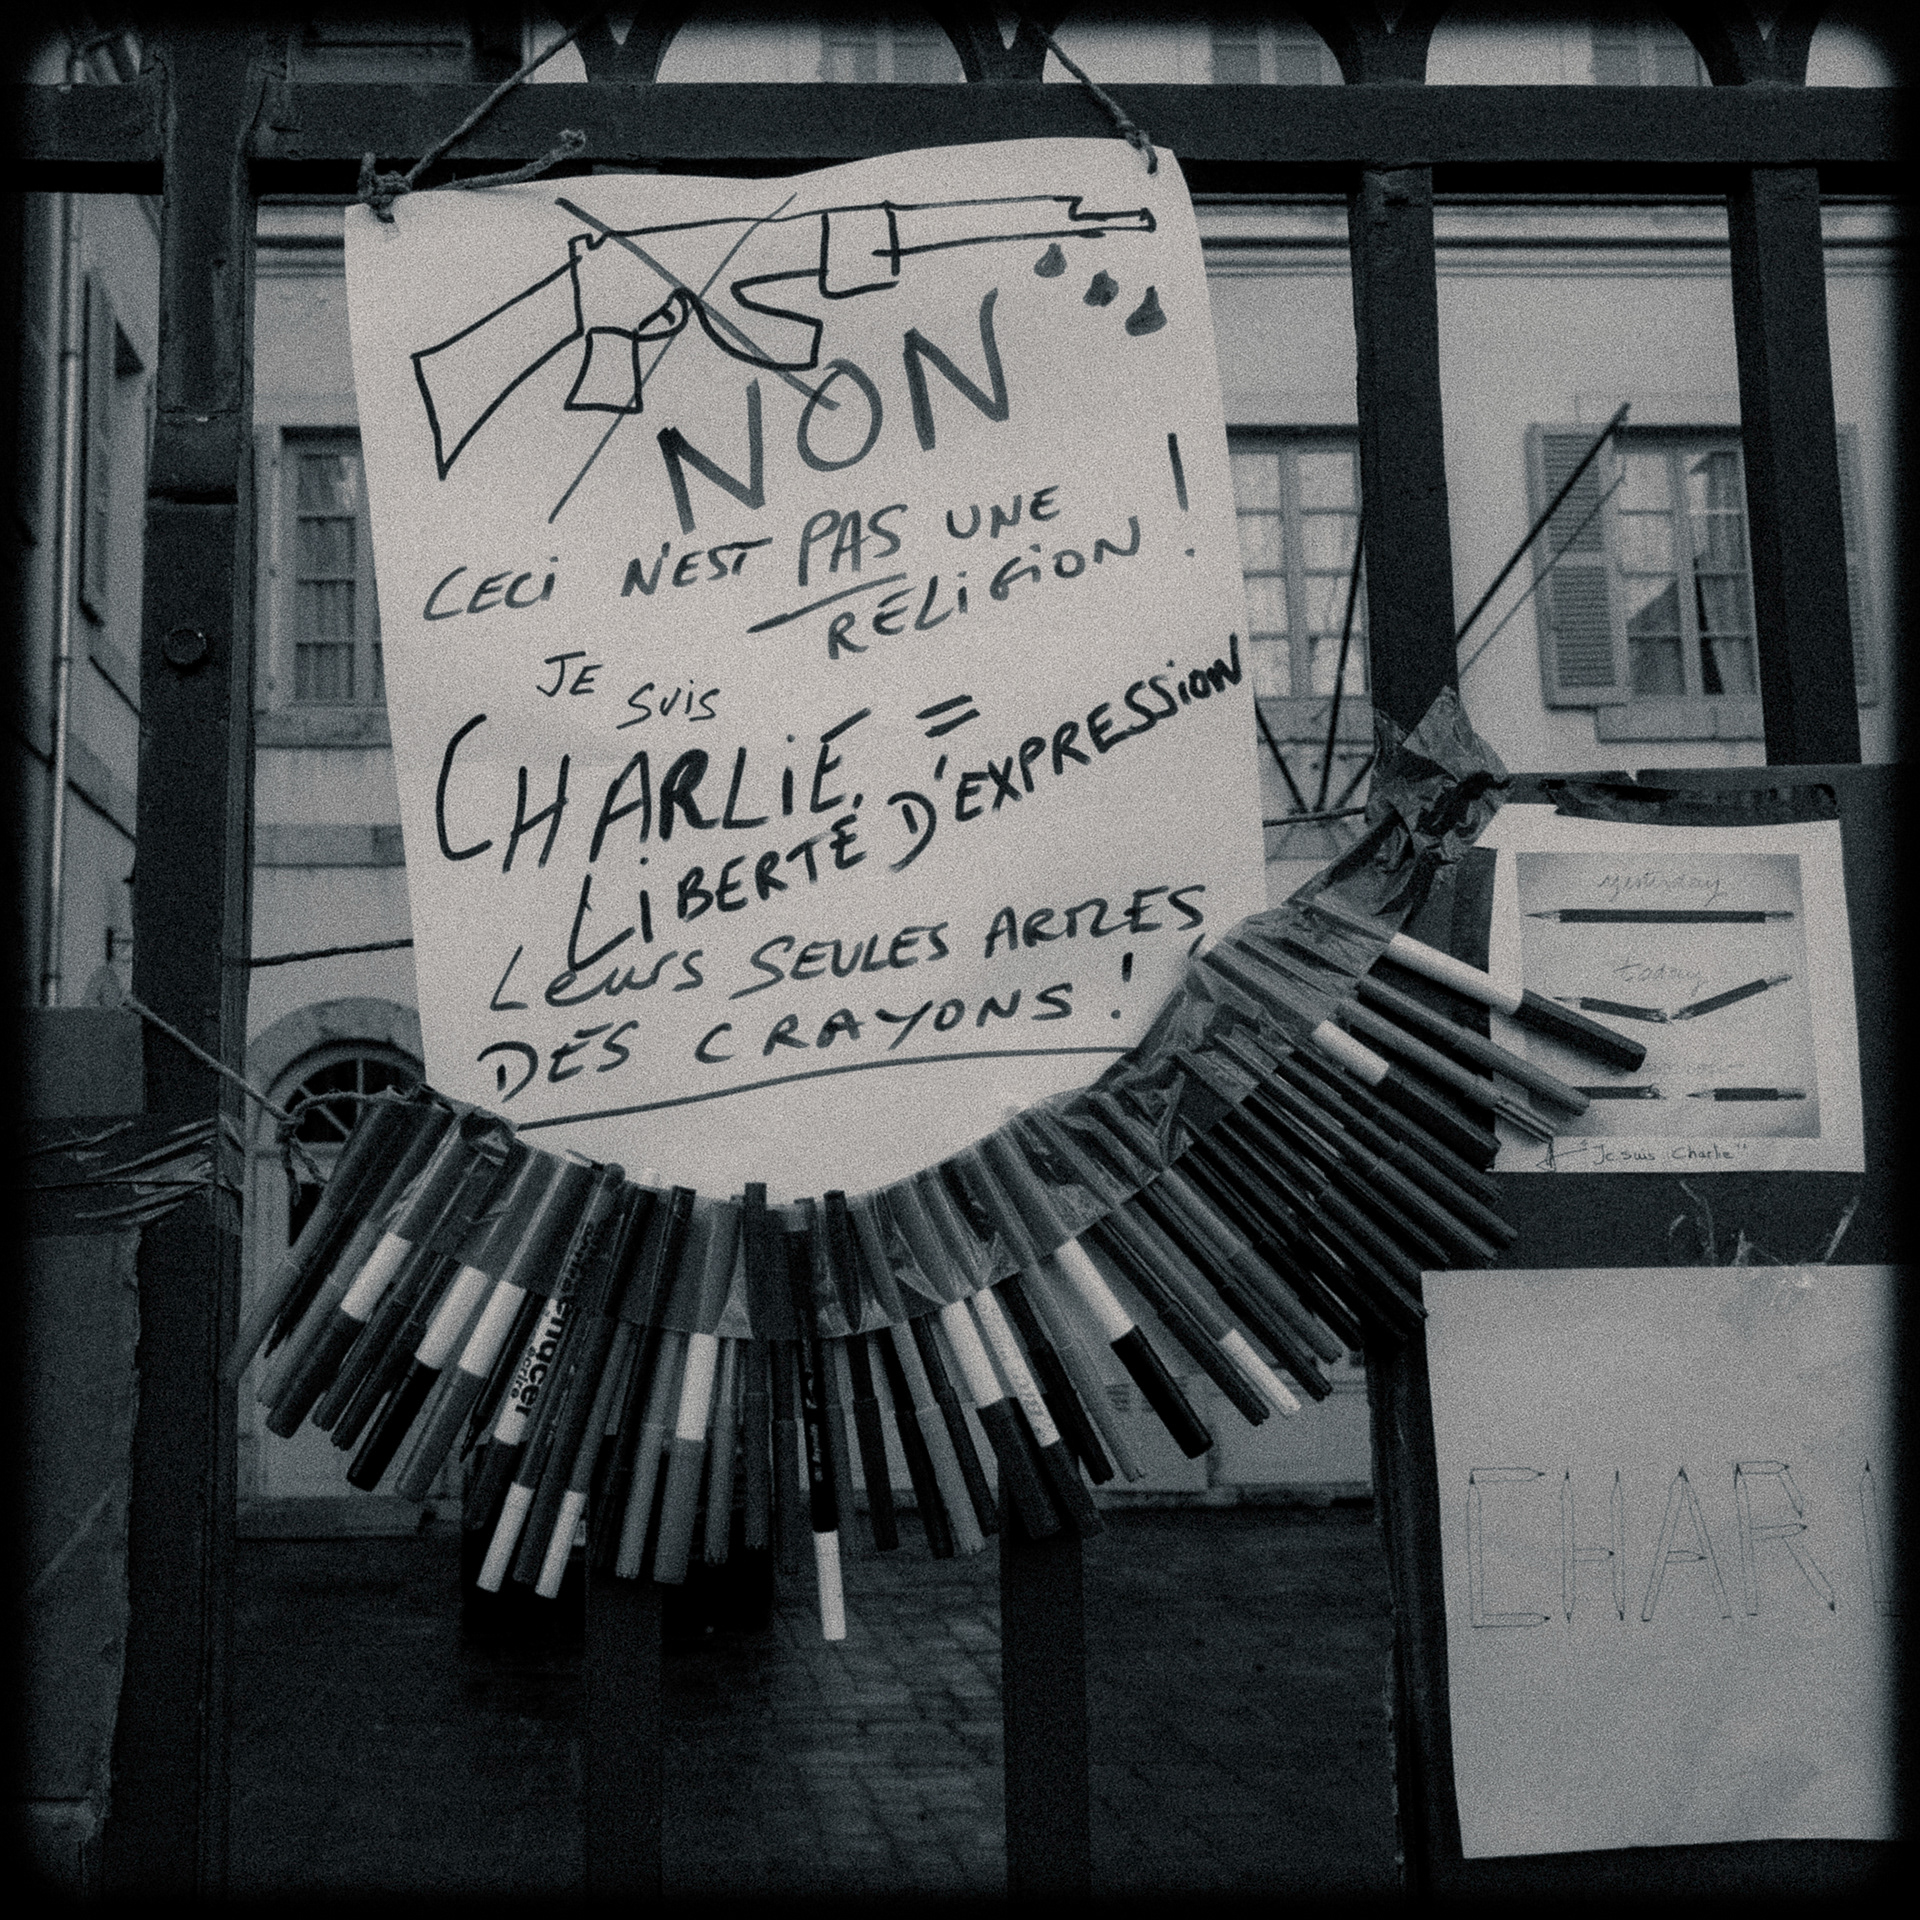 NON
CECI N'EST PAS UNE
RELIGION !
JE SUIS
CHARLIE =
LIBERTÉ D'EXPRESSION
LEURS SEULES ARMES
DES CRAYONS !
yesterday
today
"Je suis Charlie"
CHARL